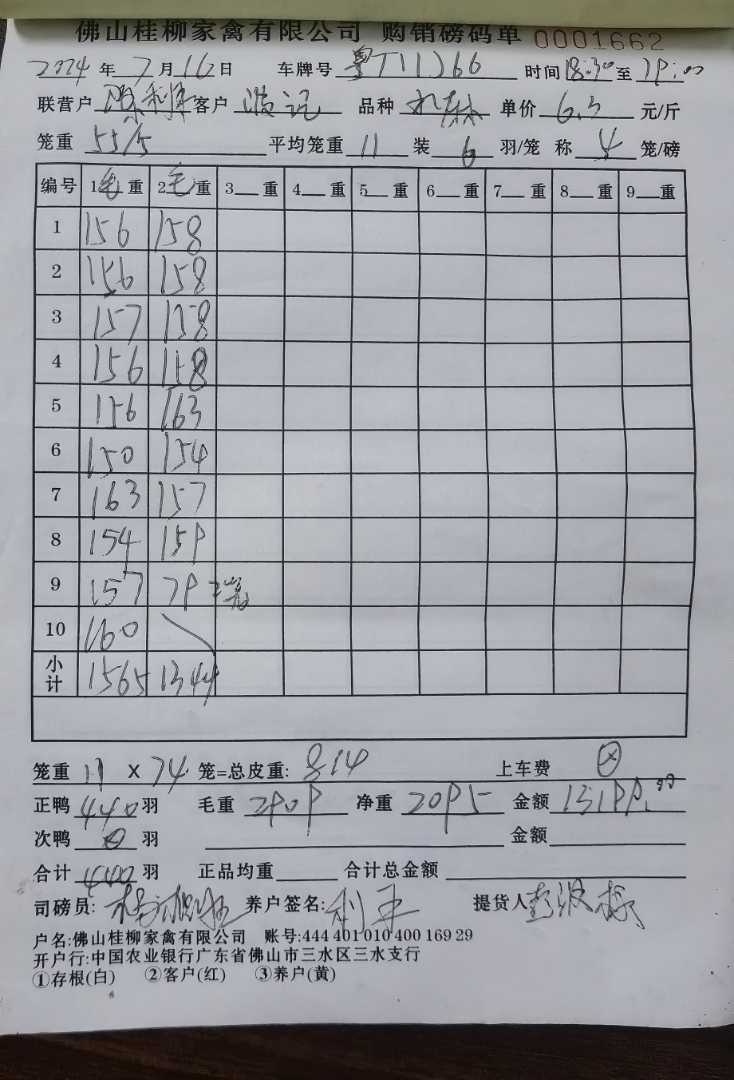 佛山桂柳家禽有限公司 购销磅码单 0001662
2024 年 7 月 16 日 车牌号 粤T11J66 时间 18:30 至 19:00
联营户 客户 波记 品种 单价 6.5 元/斤
笼重 55/5 平均笼重 11 装 6 羽/笼 称 4 笼/磅
编号 1毛重 2毛重 3 重 4 重 5 重 6 重 7 重 8 重 9 重
1 156 158
2 156 158
3 157 158
4 156 158
5 156 163
6 150 154
7 163 157
8 154 159
9 157 79 2笼
10 160
小计 1565 1344
笼重 11 X 74 笼=总皮重: 814 上车费
正鸭 440 羽 毛重 2909 净重 2095 金额
次鸭 0 羽 金额
合计 440 羽 正品均重 合计总金额
司磅员: 养户签名: 提货人
户名:佛山桂柳家禽有限公司 账号:444 401 010 400 169 29
开户行:中国农业银行广东省佛山市三水区三水支行
①存根(白) ②客户(红) ③养户(黄)